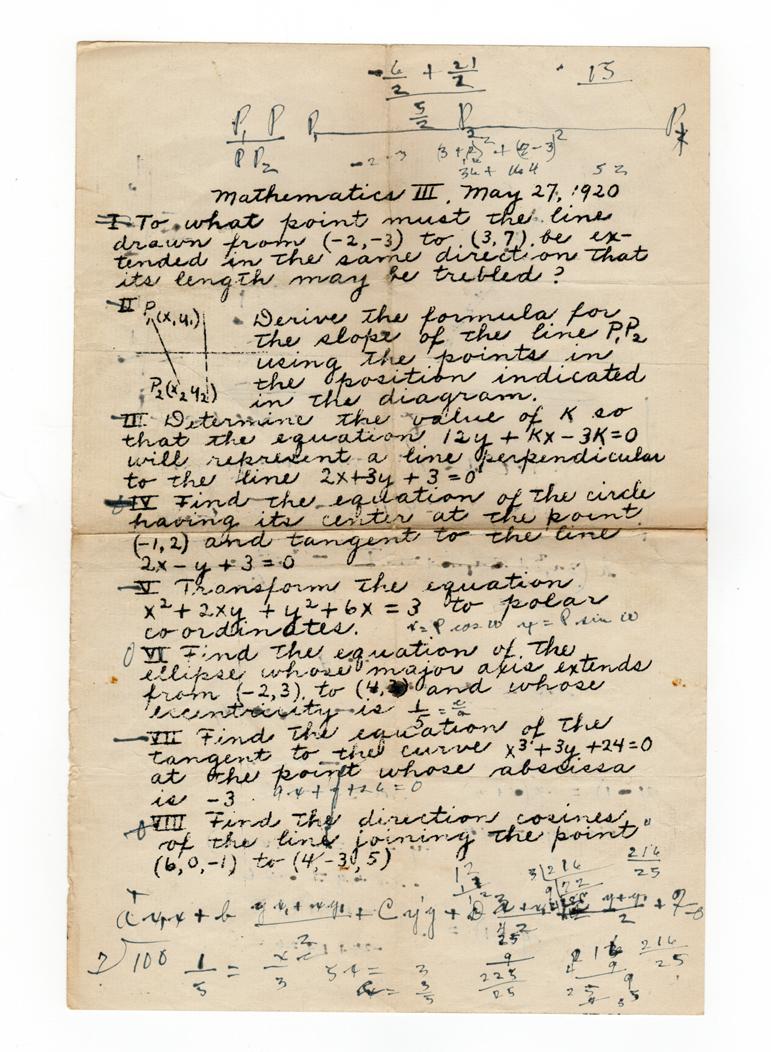 -6/2 + 21/2 15
5/2
P₁ P P₁ P₂
P P₂ -2 -3
36 + 144 52
Mathematics III, May 27, 1920
I To what point must the line
drawn from (-2,-3) to (3,7) be ex-
tended in the same direction that
its length may be trebled?
II P₁(x,y₁) Derive the formula for
the slope of the line P₁P₂
using the points in
P₂(x₂y₂) the position indicated
in the diagram.
III Determine the value of K so
that the equation 12y + Kx - 3K=0
will represent a line perpendicular
to the line 2x+3y+3=0
IV Find the equation of the circle
having its center at the point
(-1,2) and tangent to the line
2x - y + 3 = 0
V Transform the equation
x² + 2xy + y² + 6x = 3 to polar
coordinates. x = ρ cos ω y = ρ sin ω
VI Find the equation of the
ellipse whose major axis extends
from (-2,3) to (4,3) and whose
eccentricity is 1/5 = c/a
VII Find the equation of the
tangent to the curve x³+3y+24=0
at the point whose abscissa
is -3 9x+y+26=0
VIII Find the direction cosines
of the line joining the point
(6,0,-1) to (4,-3,5)
12 3|216 216/25
9|72
2
100 1/5 = x/3 5x = 3 225/25 216/25
x = 3/5